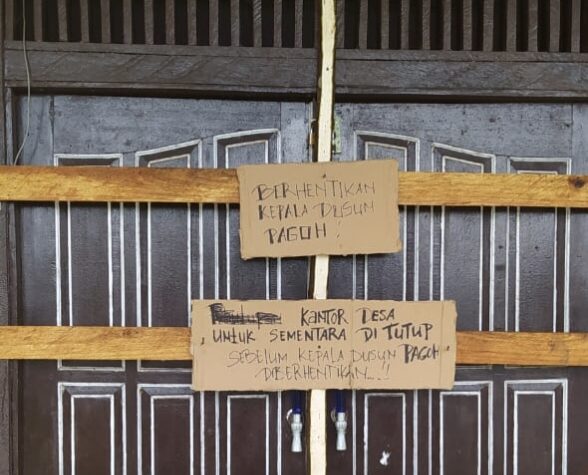 BERHENTIKAN
KEPALA DUSUN
PAGOH!
KANTOR DESA
UNTUK SEMENTARA DI TUTUP
SEBELUM KEPALA DUSUN PAGOH
DIBERHENTIKAN...!!